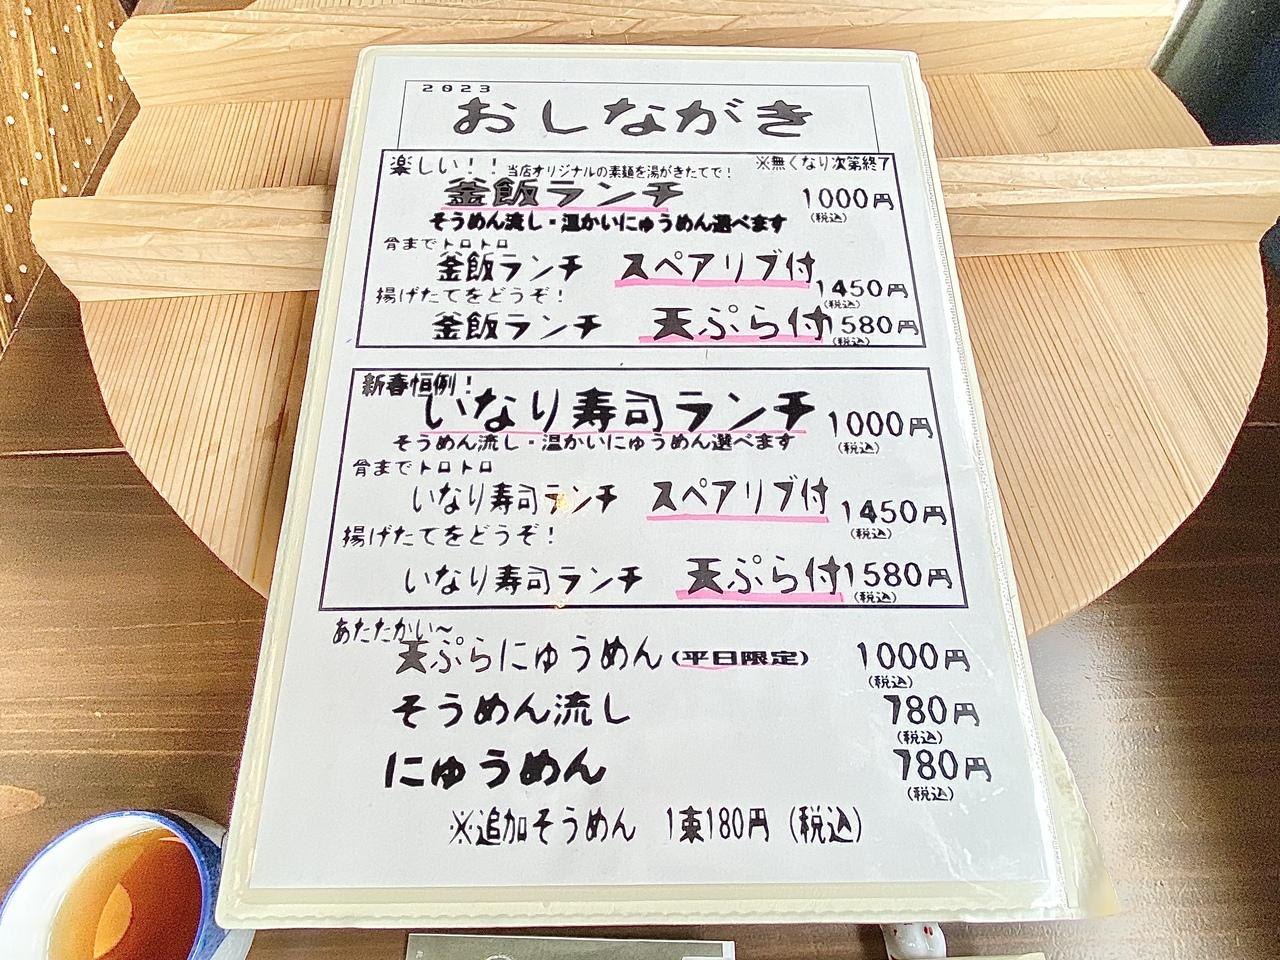 2023
おしながき
楽しい!! 当店オリジナルの素麺を湯がきたてで! ※無くなり次第終了
釜飯ランチ 1000円
(税込)
そうめん流し・温かいにゅうめん選べます
骨までトロトロ
釜飯ランチ スペアリブ付 1450円
(税込)
揚げたてをどうぞ!
釜飯ランチ 天ぷら付 1580円
(税込)
新春恒例!
いなり寿司ランチ 1000円
(税込)
そうめん流し・温かいにゅうめん選べます
骨までトロトロ
いなり寿司ランチ スペアリブ付 1450円
(税込)
揚げたてをどうぞ!
いなり寿司ランチ 天ぷら付 1580円
(税込)
あたたかい~
天ぷらにゅうめん(平日限定) 1000円
(税込)
そうめん流し 780円
(税込)
にゅうめん 780円
(税込)
※追加そうめん 1束180円 (税込)